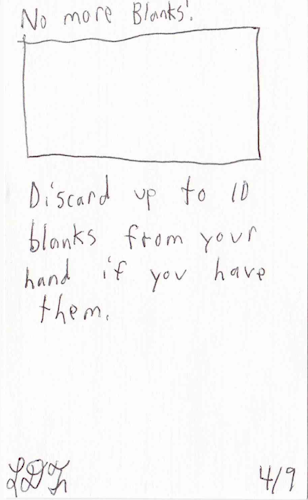 No more Blanks!
Discard up to 10
blanks from your
hand if you have
them.
4/9